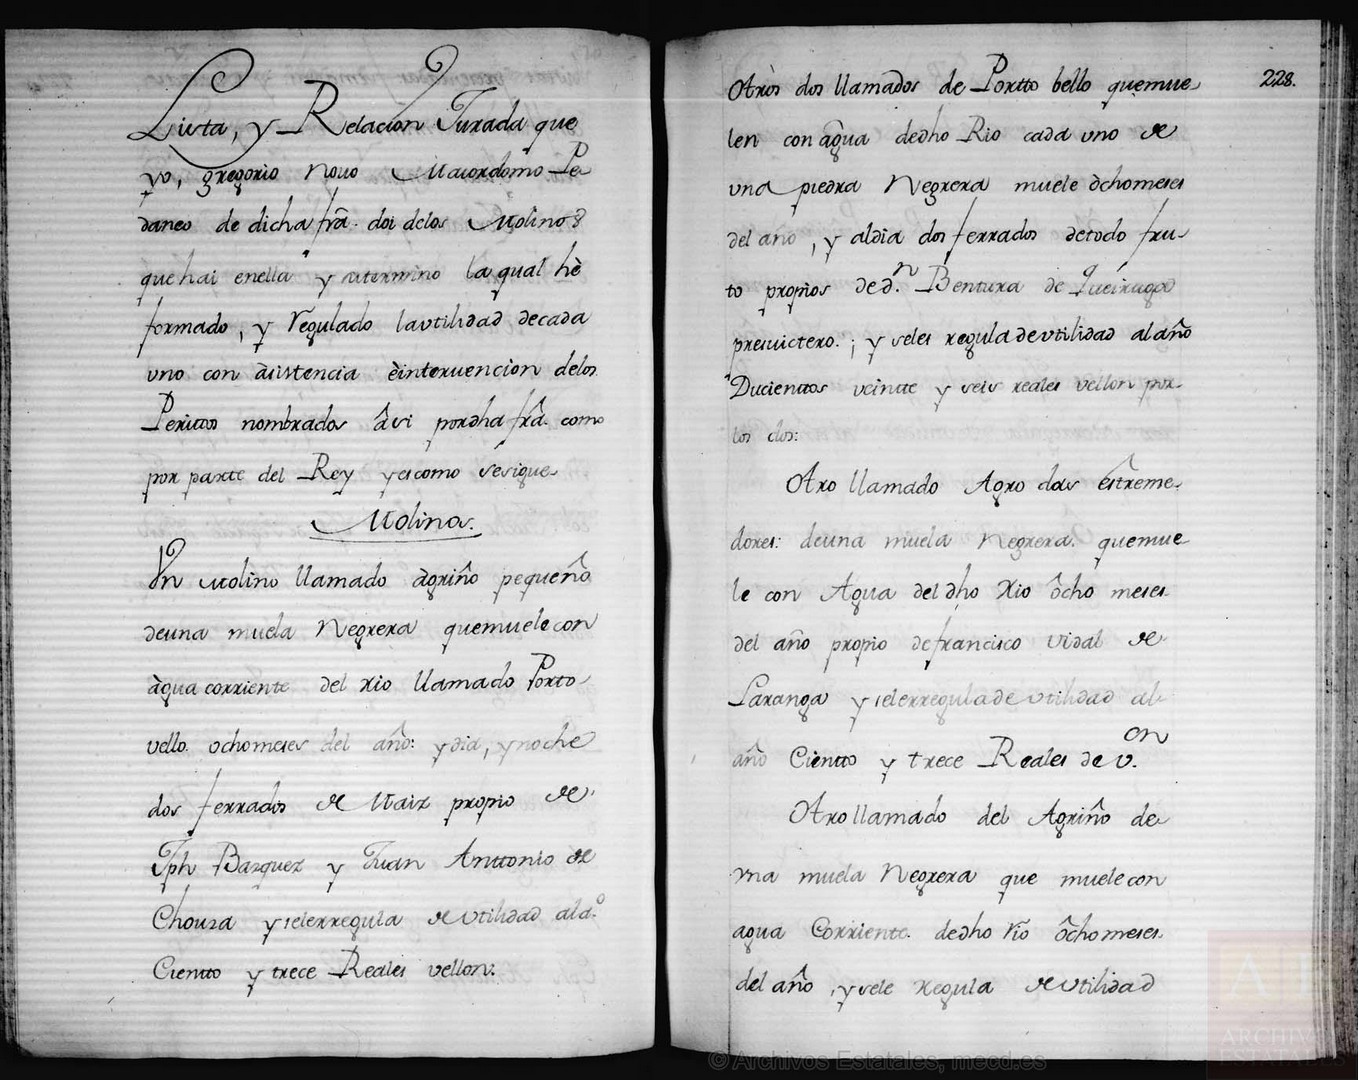 Lista, y Relacion Jurada que
yo, gregorio novo Maiordomo Pe
daneo de dicha frã. doi delos Molinos
que hai enella y sutermino la qual hè
formado, y Regulado lautilidad decada
uno con àsistencia èinteruencion delos
Peritos nombrados âsi pordha frã. como
por partte del Rey yescomo Sesigue
Molinos.
Vn Molino llamado àgriño pequeño
deuna muela Negrera quemuele con
àgua corriente del Rio llamado Porto
vello. ochomeses del año: ydia, ynoche
dos ferrados de Maiz propio de
Jph Bazquez y Juan Anttonio de
Chouza yselerregula de Vtilidad ala.º
Cientto y trece Reales vellon.
228.
Otros dos llamados de Portto bello quemue
len con agua dedho Rio cada uno de
vna piedra Negrera muele ochomeses
del año, y aldia dos ferrados detodo fru
to propios de d.n Bentura de Queiruga
presuictero.; y seles regula deutilidad al año
Ducienttos veintte y seis reales vellon por
los dos:
Otro llamado Agro das êstreme
dores: deuna muela Negrera. quemue
le con Agua del dho Rio ôcho meses
del año propio defrancisco vidal de
Laranga yselerregula de utilidad al
año Cientto y trece Reales de v.on
Otro llamado del Agriño de
vna muela Negrera que muele con
agua Corriente. dedho Rio ôcho meses
del año, ysele Regula de Vtilidad
© Archivos Estatales, mecd.es
AE
ARCHIVOS
ESTATALES